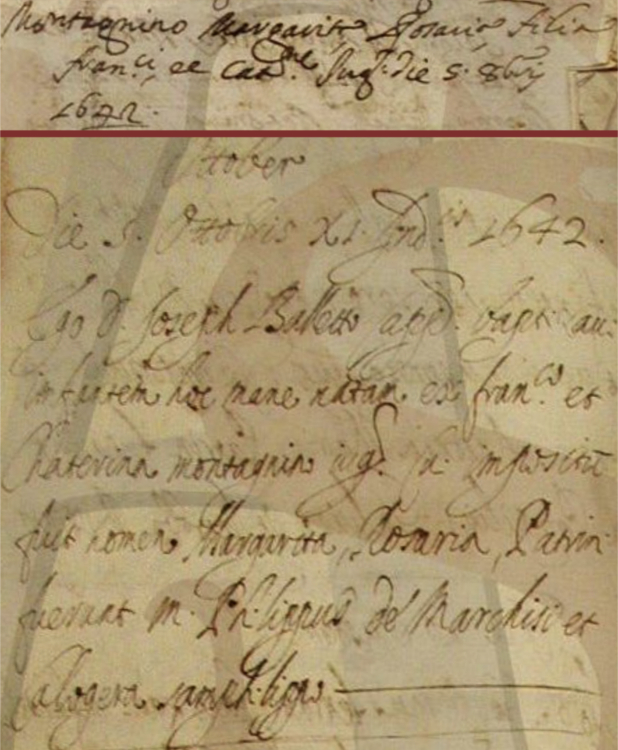 Montagnino Margarita Rosaria Filia
Fran.ci, et Cat.ne Jug. die 5. 8bris
1642.
Ottober
Die 5. Ottobris XI. Ind.is 1642.
Ego D. Joseph Balletto bapt.
infantem hoc mane natam ex Fran.co et
Chaterina montagnino iug. impositū
fuit nomen Margarita, Rosaria, Patrin
fuerunt m. Philippus de Marchisi et
Calogera samphilippo